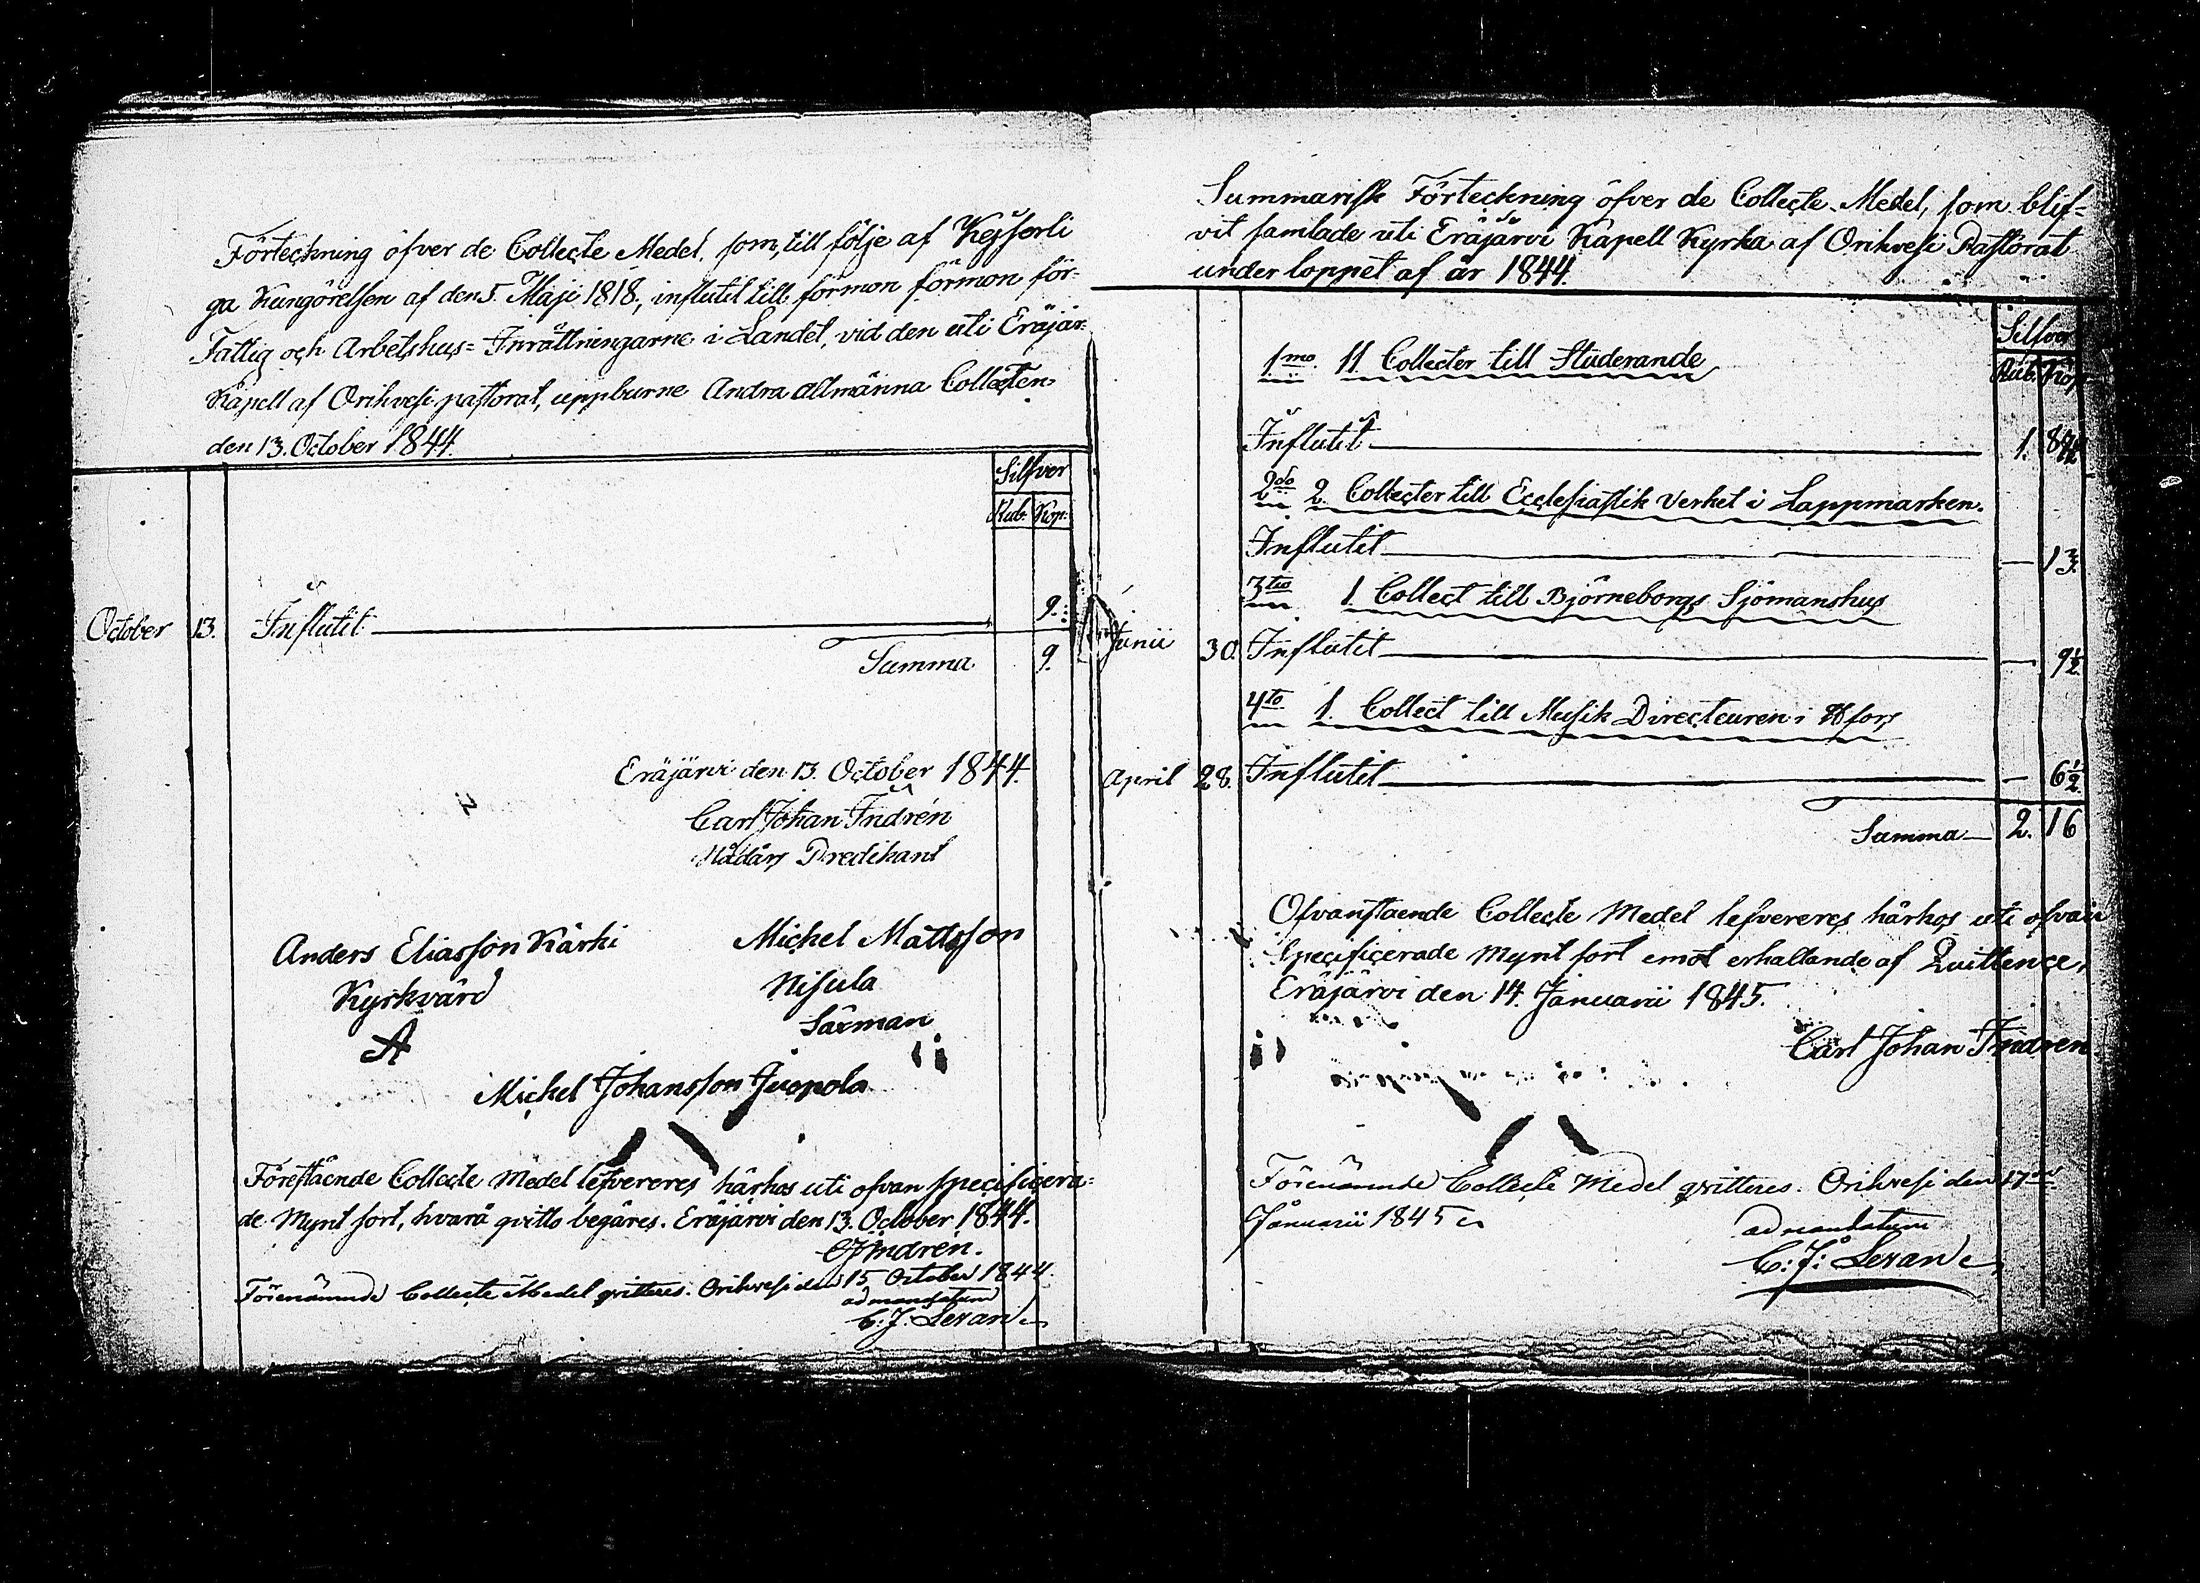 Förteckning öfver de Collecte Medel, som, till följe af Kejserli
ga Kungörelsen af den 5. Maji 1818, influtit till förmon förmon för
Fattig och Arbetshus= Inrättningarne i Landet, vid den uti Eräjär-
Kapell af Orihvesi pastorat, uppburne Andra allmänna Collecten
den 13. October 1844.
Silfver
Rub. Kop.
October 13. Influtit 9.
Summa 9.
Eräjärvi den 13. October 1844.
Carl Johan Indrén
Nådårs Predikant
Anders Eliasson Kärki
Kyrkvärd
A
Michel Mattsson
Nisula
Säxman
Michel Johansson Juopola
Förestående Collecte Medel lefvereres härhos uti ofvan specificera=
de Mynt sort, hvarå qvitto begäres. Eräjärvi den 13. October 1844.
CJIndrén.
Förenämnde Collecte Medel qvitteres. Orihvesi den 15 October 1844.
ad mandatum
C. J. Leran
Summarisk Förteckning öfver de Collecte Medel, som blif=
vit samlade uti Eräjärvi Kapell Kyrka af Orihvesi Pastorat
under loppet af år 1844.
Silfver
Rub. Kop.
1mo. 11 Collecter till Studerande
Influtit 1.
2do 2 Collecter till Ecclesiastik Verket i Lappmarken.
Influtit — 13.
3tio 1 Collect till Björneborgs Sjömanshus
Junii 30. Influtit — 9½
4to 1. Collect till Musik Directeuren i Hfors
April 28. Influtit — 6½
Summa 2. 16
Ofvanstaende Collecte Medel lefvereres härhos uti ofvan
Specificerade Mynt sort emot erhallande af Quittence,
Eräjärvi den 14. Januarii 1845.
Carl Johan Indrén
Förenämnde Collecte Medel qvitteres. Orihvesi den 17de
Januarii 1845
ad mandatum
C: J: Leran